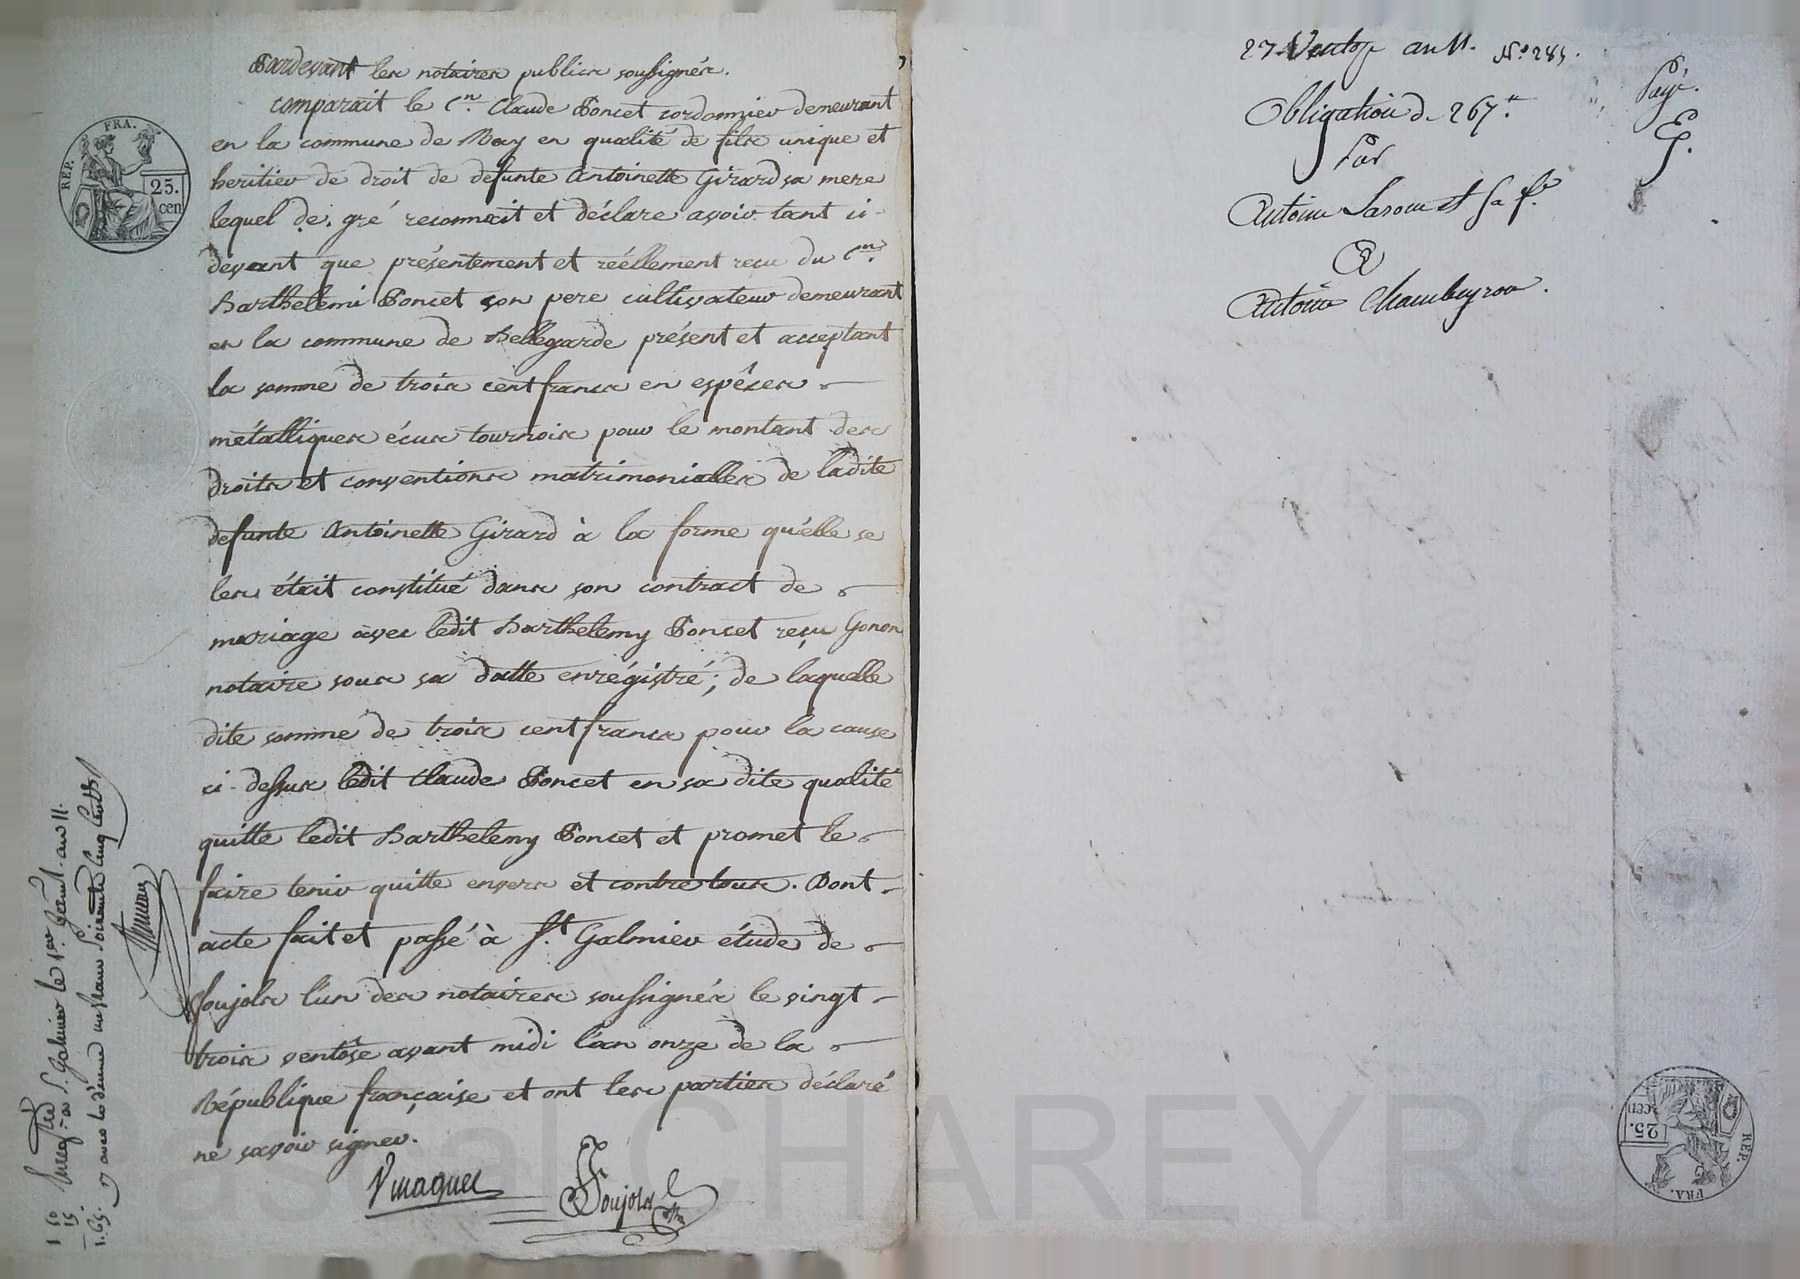 Pardevant les notaires publics soussignés.
comparait le C.en Claude Poncet cordonnier demeurant
en la commune de en qualité de fils unique et
heritier de droit de defunte Antoinette Girard sa mere
lequel de gré reconnait et déclare avoir tant ci-
devant que présentement et réellement reçu du C.en
Barthelemi Poncet son pere cultivateur demeurant
en la commune de Bellegarde présent et acceptant
la somme de trois cent francs en espéces
métalliques écus tournois pour le montant des
droits et conventions matrimonialles de ladite
defunte Antoinette Girard à la forme qu'elle se
les était constitué dans son contract de
mariage avec ledit Barthelemy Poncet reçu Gonon
notaire sous sa datte enrégistré; de laquelle
dite somme de trois cent francs pour la cause
ci-dessus ledit Claude Poncet en sa dite qualité
quitte ledit Barthelemy Poncet et promet le
faire tenir quitte envers et contre tous. Dont
acte fait et passé à S.t Galmier étude de
Soujols l'un des notaires soussignés le vingt
trois ventôse avant midi l'an onze de la
République française et ont les parties déclaré
ne savoir signer.
Soujols
REP. FRA.
25.
cen
Enregtré à S.t Galmier le 1er germ.al an 11.
un franc soixante cinq cent.
1 50
15
1.65.
27 Ventose an 11. N.o 285.
Obligation de 267.tt
Par
Antoine et sa f.e
A
Antoine Chambeyron.
Payé.
REP. FRA.
25.
cen
Pascal CHAREYRON